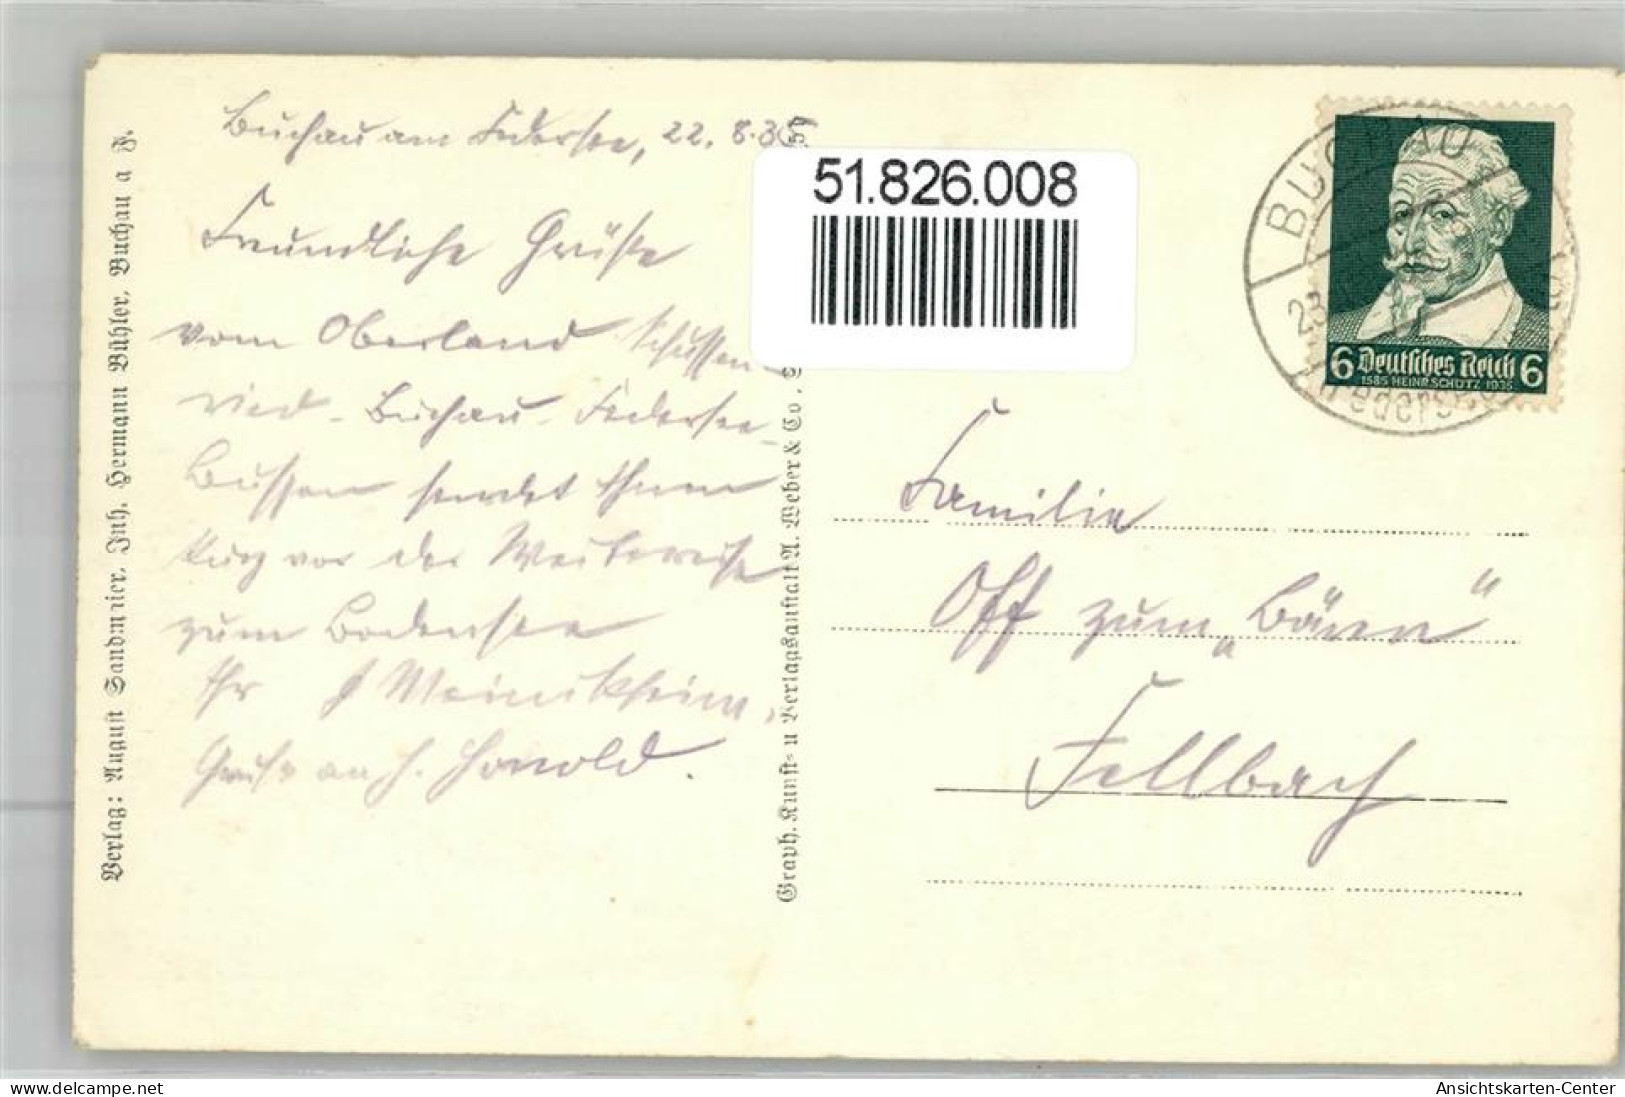 Buchau am Federsee, 22. 8. 35
Freundliche Grüße
vom Oberland Schussen-
ried - Buchau - Federsee -
Bussen sendet Ihnen
kurz vor der Weiterreise
zum Bodensee
Ihr
Grüße an H. Honold.
Verlag: August Sandmeier, Inh. Hermann Bühler, Buchau a F.
Graph. Kunst- u Verlagsanstalt A. Weber & Co.
51.826.008
BUCHAU
(Federsee)
6 Deutsches Reich 6
1585 HEINR. SCHÜTZ 1935
Familie
Off zum „Bären“
Fellbach
www.delcampe.net
Ansichtskarten-Center